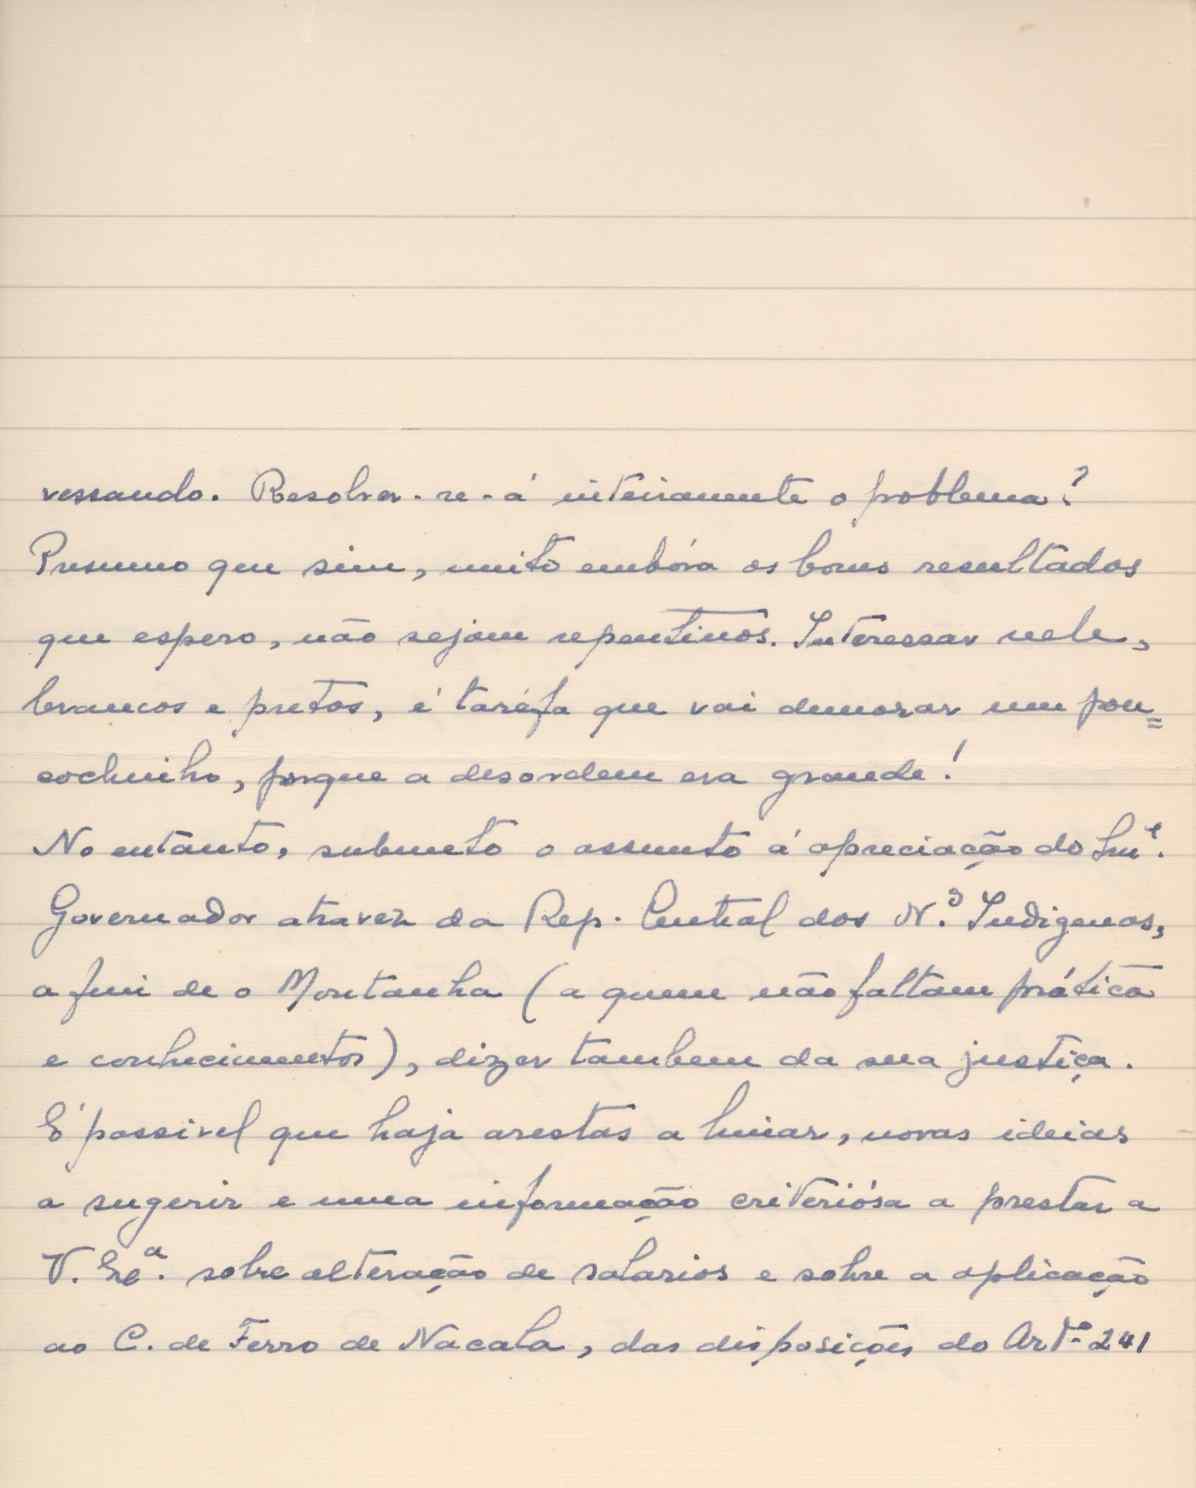 vessando. Resolver-se-á inteiramente o problema?
Presumo que sim, muito embóra os bons resultados
que espero, não sejam repentinos. Interessar nele,
brancos e pretos, é taréfa que vai demorar um pou=
cochinho, porque a desordem era grande!
No entanto, submeto o assunto á apreciação do
Governador atravez da Rep. Central dos N.os Indigenas,
a fim de o Montanha (a quem não faltam prática
e conhecimentos), dizer tambem da sua justiça.
É possivel que haja arestas a limar, novas ideias
a sugerir e uma informação criteriósa a prestar a
V. Exa. sobre alteração de salarios e sobre a aplicação
ao C. de Ferro de Nacala, das disposições do Artº 241